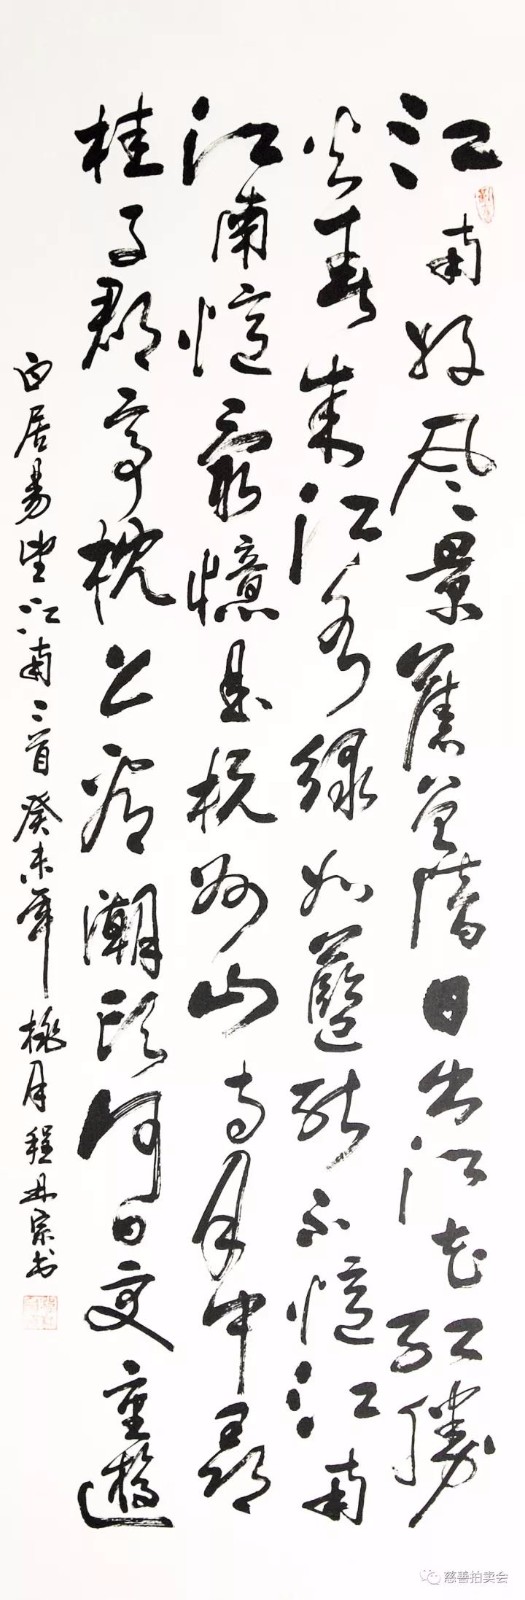 江南好风景舊曾諳日出江花紅勝
火春来江水綠如藍能不憶江南
江南憶最憶是杭州山寺月中尋
桂子郡亭枕上看潮頭何日更重遊
白居易望江南二首癸未年桃月程宗书
慈善拍卖会